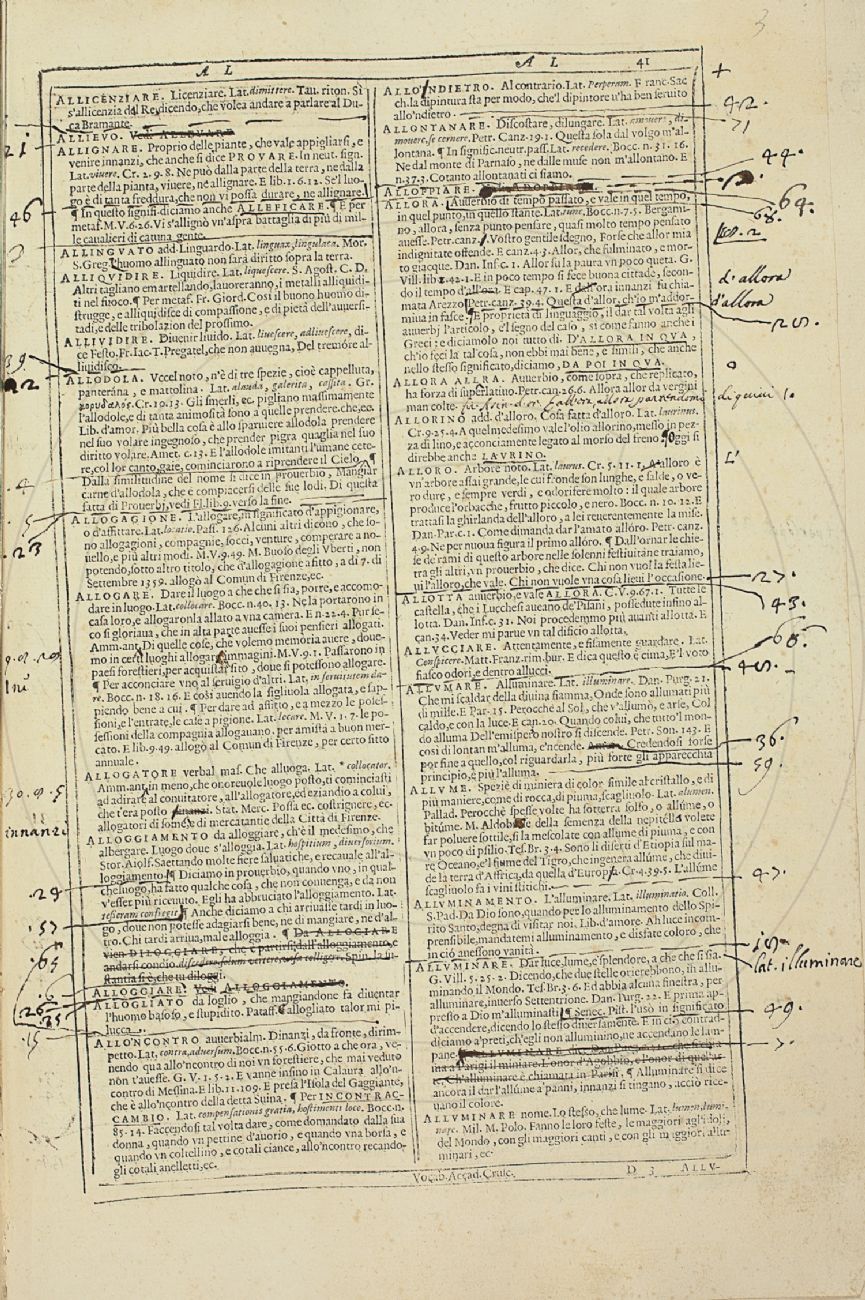 3
A L
A L
41
ALLICENZIARE. Licenziare. Lat. dimittere. Tau. riton. Sì
s'allicenzia dal Re, dicendo, che volea andare a parlare al Du-
ca Bramante.
ALLIEVO. Vedi ALLEVARE
ALLIGNARE. Proprio delle piante, che vale appigliarsi, e
venire innanzi, che anche si dice PROVARE. In neut. sign.
Lat. viuere. Cr. 2. 9. 8. Ne può dalla parte della terra, ne dalla
parte della pianta, viuere, ne allignare. E lib. 1. 6. 12. Se'l luo-
go è di tanta freddura, che non vi possa durare, ne allignare.
¶ In questo signifi. diciamo anche ALLEFICARE. ¶ E per
metaf. M. V. 6. 26. Vi s'allignò vn'aspra battaglia di più di mil-
le caualieri di catuna gente.
ALLINGVATO add. Linguardo. Lat. linguax, lingulaca. Mor.
S. Greg. L'huomo allinguato non sarà diritto sopra la terra.
ALLIQVIDIRE. Liquidire. Lat. liquescere. S. Agost. C. D.
Altri tagliano em artellando, lauoreranno, i metalli alliquidi-
ti nel fuoco. ¶ Per metaf. Fr. Giord. Così il buono huomo di-
strugge, e alliquidisce di compassione, e di pietà dell'auuersi-
tadi, e delle tribolazion del prossimo.
ALLIVIDIRE. Diuenir liuido. Lat. liuescere, adliuescere, di-
ce Festo. Fr. Iac. T. Pregatel, che non auuegna, Del tremore al-
liuidisco.
ALLODOLA. Vccel noto, n'è di tre spezie, cioè cappelluta,
panterana, e mattolina. Lat. alauda, galerita, cassita. Gr.
κορυδαλός. Cr. 10. 13. Gli smerli, ec. pigliano massimamente
l'allodole, e di tanta animosità sono a quelle prendere, che, ec.
Lib. d'amor. Più bella cosa è allo sparuiere allodola prendere
nel suo volare ingegnoso, che prender pigra quaglia nel suo
diritto volare. Amet. c. 13. E l'allodole imitanti l'umane cete-
re, col lor canto gaie, cominciarono a riprendere il Cielo. ¶
Dalla similitudine del nome si dice in prouerbio, Mangiar
carne d'allodola, che è compiacersi delle sue lodi. Di questa
fatta di Prouerbj, vedi Fl. lib. 9. verso la fine.
ALLOGAGIONE. L'allogare, in significato d'appigionare,
o d'affittare. Lat. locatio. Pass. 126. Alcuni altri dicono, che so-
no allogagioni, compagnie, socci, venture, comperare a no-
uello, e più altri modi. M. V. 9. 49. M. Buoso degli Vberti, non
potendo, sotto altro titolo, che d'allogagione a fitto, a dì 7. di
Settembre 1359. allogò al Comun di Firenze, ec.
ALLOGARE. Dare il luogo a che che si sia, porre, e accomo-
dare in luogo. Lat. collocare. Bocc. n. 40. 13. Ne la portarono in
casa loro, e allogaronla allato a vna camera. E n. 22. 4. Pur se-
co si gloriaua, che in alta parte auesse i suoi pensieri allogati.
Amm. ant. Di quelle cose, che volemo memoria auere, doue-
mo in certi luoghi allogare immagini. M. V. 9. 1. Passarono in
paesi forestieri, per acquistar sito, doue si potessono allogare.
¶ Per acconciare vno al seruigio d'altri. Lat. in seruitutem da-
re. Bocc. n. 18. 16. E così auendo la figliuola allogata, e sap-
piendo bene a cui. ¶ Per dare ad affitto, e a mezzo le posses-
sioni, e l'entrate, le case a pigione. Lat. locare. M. V. 1. 7. le pos-
sessioni della compagnia allogauano, per amistà a buon mer-
cato. E lib. 9. 49. allogò al Comun di Firenze, per certo fitto
annuale.
ALLOGATORE verbal mas. Che alluoga. Lat. * collocator.
Amm. ant. in meno, che onoreuole luogo posto, ti cominciasti
ad adirare al conuitatore, all'allogatore, ed eziandio a colui,
che t'era posto innanzi. Stat. Merc. Possa ec. costrignere, ec.
allogatori di some di mercatantie della Città di Firenze.
ALLOGGIAMENTO da alloggiare, ch'è il medesimo, che
albergare. Luogo doue s'alloggia. Lat. hospitium, diuersorium.
Stor. Aiolf. Saettando molte fiere saluatiche, e recauale all'al-
loggiamento. ¶ Diciamo in prouerbio, quando vno, in qual-
che luogo, ha fatto qualche cosa, che non conuenga, e da non
v'esser più riceuuto. Egli ha abbruciato l'alloggiamento. Lat.
tesseram confregit. ¶ Anche diciamo a chi arriuasse tardi in luo-
go, doue non potesse adagiarsi bene, ne di mangiare, ne d'al-
tro. Chi tardi arriua, male alloggia. ¶ Da ALLOGIARE
vien DILOGGIARE, che è partirsi dall'alloggiamento, e
stantia si è, che tu diloggi.
ALLOGGIARE. Vedi ALLOGGIAMENTO.
ALLOGLIATO da loglio, che mangiandone fa diuentar
l'huomo baloso, e stupidito. Pataff. ¶ allogliato talor mi pi-
lucca.
ALLO'NCONTRO auuerbialm. Dinanzi, da fronte, dirim-
petto. Lat. contra, aduersum. Bocc. n. 55. 6. Giotto a che ora, ve-
nendo qua allo'ncontro di noi vn forestiere, che mai veduto
non t'auesse. G. V. 1. 5. 2. E vanne infino in Calaura allo'n-
contro di Messina. E lib. 11. 109. E presa l'Isola del Gaggiante,
che è allo'ncontro della detta Suina. ¶ Per INCONTRAC-
CAMBIO. Lat. compensationis gratia, hostimenti loco. Bocc. n.
85. 14. Faccendosi tal volta dare, come domandato dalla sua
donna, quando vn pettine d'auorio, e quando vna borsa, e
quando vn coltellino, e cotali ciance, allo'ncontro recando-
gli cotali anelletti, ec.
ALLO'NDIETRO. Al contrario. Lat. Perperam. Franc. Sac
ch. la dipintura sta per modo, che'l dipintore n'ha ben seruito
allo'ndietro.
ALLONTANARE. Discostare, dilungare. Lat. amouere, di-
mouere, se cernere. Petr. Canz. 19. 1. Questa sola dal volgo m'al-
lontana. ¶ In signific. neutr. pass. Lat. recedere. Bocc. n. 31. 16.
Ne dal monte di Parnaso, ne dalle muse non m'allontano. E
n. 37. 3. Cotanto allontanati ci siamo.
ALLOPPIARE.
ALLORA. Auuerbio di tempo passato, e vale in quel tempo,
in quel punto, in quello stante. Lat. tunc. Bocc. n. 7. 5. Bergami-
no, allora, senza punto pensare, quasi molto tempo pensato
auesse. Petr. canz. Vostro gentile sdegno, Forse che allor mia
indignitate offende. E canz. 43. Allor, che fulminato, e mor-
to giacque. Dan. Inf. c. 1. Allor fu la paura vn poco queta. G.
Vill. lib. 1. 42. 1. E in poco tempo si fece buona cittade, secon-
do il tempo d'allora. E cap. 47. 1. E dall'ora innanzi fu chia-
mata Arezzo. Petr. canz. 39. 4. Questa d'allor, ch'io m'addor-
miua in fasce. ¶ E proprietà di linguaggio, il dar tal volta agli
auuerbj l'articolo, e'l segno del caso, sì come fanno anche i
Greci: e diciamolo noi tutto dì. D'ALLORA IN QVA,
ch'io feci la tal cosa, non ebbi mai bene, e simili, che anche
nello stesso significato, diciamo, DA POI IN QVA.
ALLORA ALLRA. Auuerbio, come sopra, che replicato,
ha forza di superlatiuo. Petr. can. 26. 6. Allora allor da vergini
man colte.
ALLORINO add. d'alloro. Cosa fatta d'alloro. Lat. laurinus.
Cr. 9. 25. 4. A quel medesimo vale l'olio allorino, messo in pez-
za di lino, e acconciamente legato al morso del freno. Oggi si
direbbe anche LAVRINO.
ALLORO. Arbore noto. Lat. laurus. Cr. 5. 11. 1. Alloro è
vn'arbore assai grande, le cui fronde son lunghe, e salde, o ve-
ro dure, e sempre verdi, e odorifere molto: il quale arbore
produce l'orbacche, frutto piccolo, e nero. Bocc. n. 10. 12. E
trattasi la ghirlanda dell'alloro, a lei reuerentemente la mise.
Dan. Par. c. 1. Come dimanda dar l'amato allóro. Petr. canz.
4. 9. Ne per nuoua figura il primo allóro. ¶ Dall'ornar le chie-
se de'rami di questo arbore nelle solenni festiuitàne traiamo,
tra gli altri, vn prouerbio, che dice. Chi non vuol la festa lie-
ui l'alloro, che vale. Chi non vuole vna cosa lieui l'occasione.
ALLOTTA auuerbio, e vale ALLORA. C. V. 9. 67. 1. Tutte le
castella, che i Lucchesi aueano de'Pisani, possedute infino al-
lotta. Dan. Inf. c. 31. Noi procedemmo più auanti allotta. E
can. 34. Veder mi parue vn tal dificio allotta.
ALLVCCIARE. Attentamente, e fisamente guardare. Lat.
Conspicere. Matt. Franz. rim. bur. E dica questo è cima, E'l voto
fiasco odori, e dentro allucci.
ALLVMARE. Alluminare. Lat. illuminare. Dan. Purg. 21.
Che mi scaldar della diuina fiamma, Onde sono allumati più
di mille. E Par. 15. Perocchè al Sol, che v'allumò, e arse, Col
caldo, e con la luce. E can. 20. Quando colui, che tutto'l mon-
do alluma Dell'emispero nostro sì discende. Petr. Son. 143. E
così di lontan m'alluma, e'ncende. Credendosi forse
por fine a quello, col riguardarla, più forte gli apparecchia
principio, e più l'alluma.
ALLVME. Spezie di miniera di color simile al cristallo, e di
più maniere, come di rocca, di piuma, scagliuolo. Lat. alumen.
Pallad. Perocchè spesse volte ha sotterra solfo, o allúme, o
bitúme. M. Aldobr. se della semenza della nepitella volete
far poluere sottile, si la mescolate con allume di piuma, e con
vn poco di psilio. Tes. Br. 3. 4. Sono li diserti d'Etiopia sul ma-
re Oceano, e'l fiume del Tigro, che ingenera allúme, che diui-
de la terra d'Affrica, da quella d'Europa. Cr. 4. 39. 5. L'allúme
scagliuolo fa i vini stitichi.
ALLVMINAMENTO. L'alluminare. Lat. illuminatio. Coll.
S. Pad. Da Dio sono, quando per lo alluminamento dello Spi-
rito Santo, degna di visitar noi. Lib. d'Amore. Ah luce incom-
prensibile, mandatemi alluminamento, e disfate coloro, che
in ciò anessono vanità.
ALLVMINARE. Dar luce, lume, e splendore, a che che si sia.
G. Vill. 5. 25. 2. Dicendo, che due stelle orierebbono, in allu-
minando il Mondo. Tes. Br. 3. 6. Ed abbia alcuna finestra, per
alluminare, inuerso Settentrione. Dan. Purg. 22. E prima ap-
presso a Dio m'alluminasti. ¶ Senec. Pist. l'usò in significato
d'accendere, dicendo lo stesso diuersamente. E in ciò contrad-
diciamo a preti, ch'egli non alluminino, ne accendano le lam-
pane.
na a Parigi il miniare. L'onor d'Agobbio, e l'onor di quell'ar-
te, Ch'alluminare è chiamata in Parisi. ¶ Alluminare si dice
ancora il dar l'allume a panni, innanzi si tingano, acciò rice-
uano il colore.
ALLVMINARE nome. Lo stesso, che lume. Lat. lumen,
Mil. M. Polo. Fanno le loro feste, le maggiori agl'idoli,
del Mondo, con gli maggiori canti, e con gli maggiori allu-
minari, ec.
Vocab. Accad. Crusc.
D 3
ALLV-
21
46
39
22
4
5
23
innanzi
29
57
65
6
26
35
15
+
42.
71
44.
64.
68.
d'allora
d'allora
25.
di quivi
L'
27.
43.
68.
45.
36.
59.
47.
lat. illuminare
49.
7.